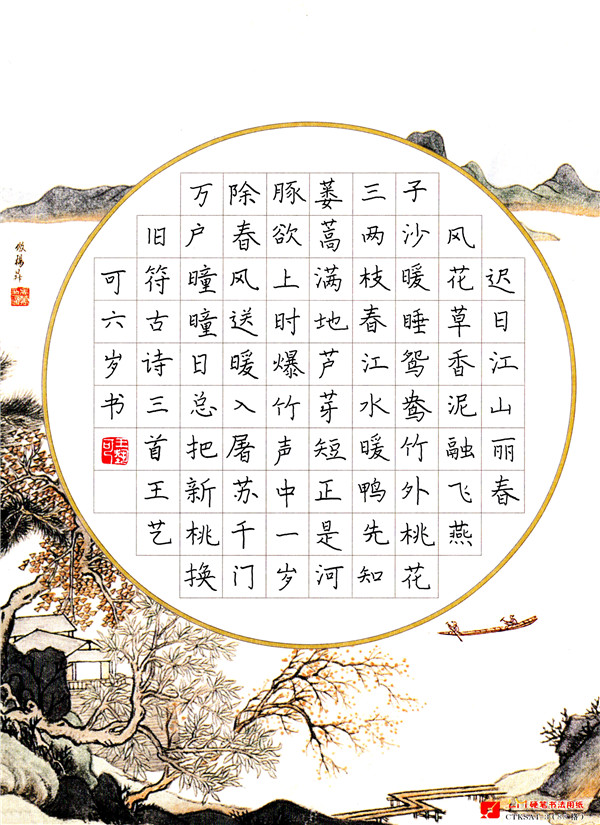 迟日江山丽春
风花草香泥融飞燕
子沙暖睡鸳鸯竹外桃花
三两枝春江水暖鸭先知
蒌蒿满地芦芽短正是河
豚欲上时爆竹声中一岁
除春风送暖入屠苏千门
万户瞳瞳日总把新桃换
旧符古诗三首王艺
可六岁书
王艺可
硬笔书法用纸